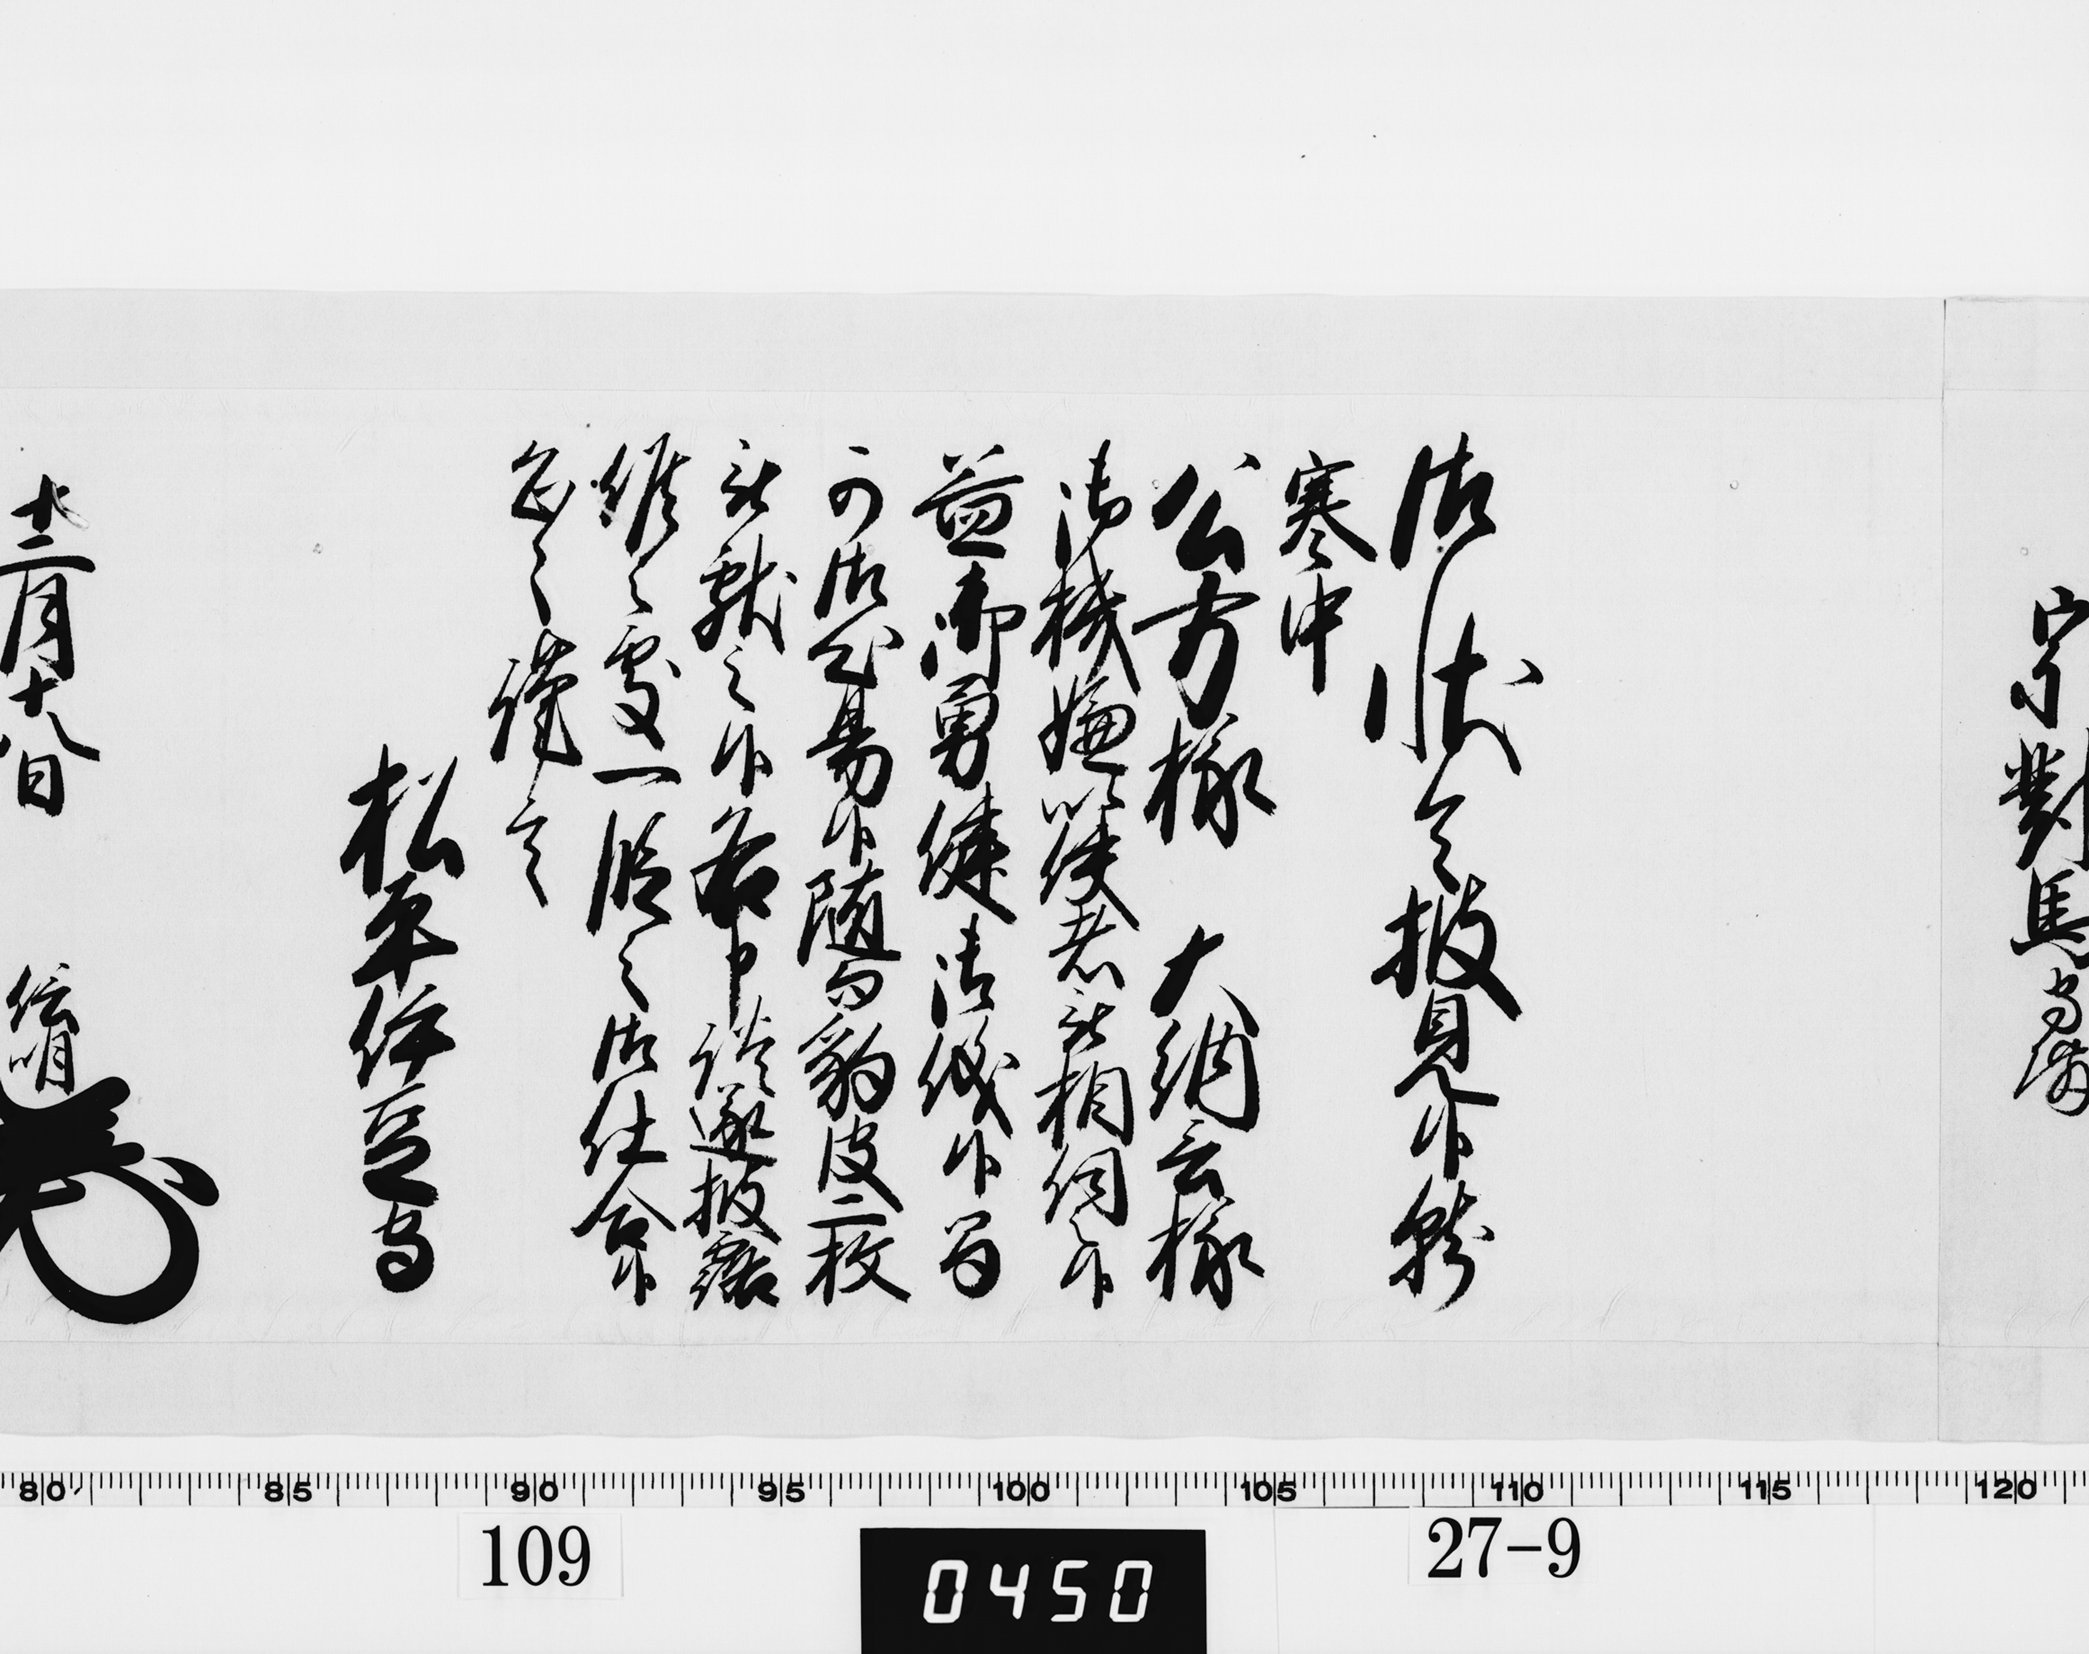 宗對馬守殿
御状令披見候就
寒中
公方様 大納言様
御機嫌以使者被相伺之候
益御勇健御儀候間
可御心易候随而豹皮二枚
被献之候各申談遂披露
候之處一段之御仕合候
恐々謹言
松平伊豆守
十二月十八日 信明
80 85 90 95 100 105 110 115 120
109
0450
27-9